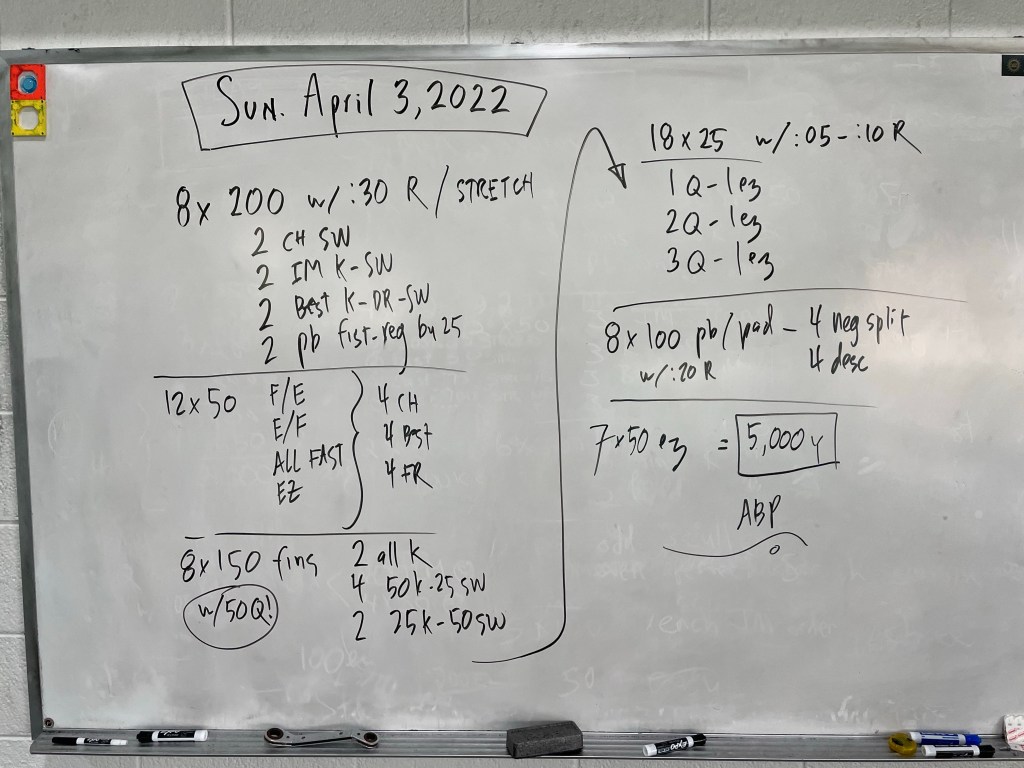 Sun. April 3, 2022
8 x 200 w/ :30 R / STRETCH
2 CH SW
2 IM K-SW
2 Best K-DR-SW
2 pb fist-reg by 25
12 x 50
F/E
E/F
ALL FAST
EZ
4 CH
4 Best
4 FR
8 x 150 fins
w/50Q!
2 all K
4 50k-25 SW
2 25k-50 SW
18 x 25 w/ :05 - :10 R
1 Q - 1 ez
2 Q - 1 ez
3 Q - 1 ez
8 x 100 pb/pad - 4 neg split
w/ :20 R 4 desc
7 x 50 ez = 5,000 y
ABP
EXPO